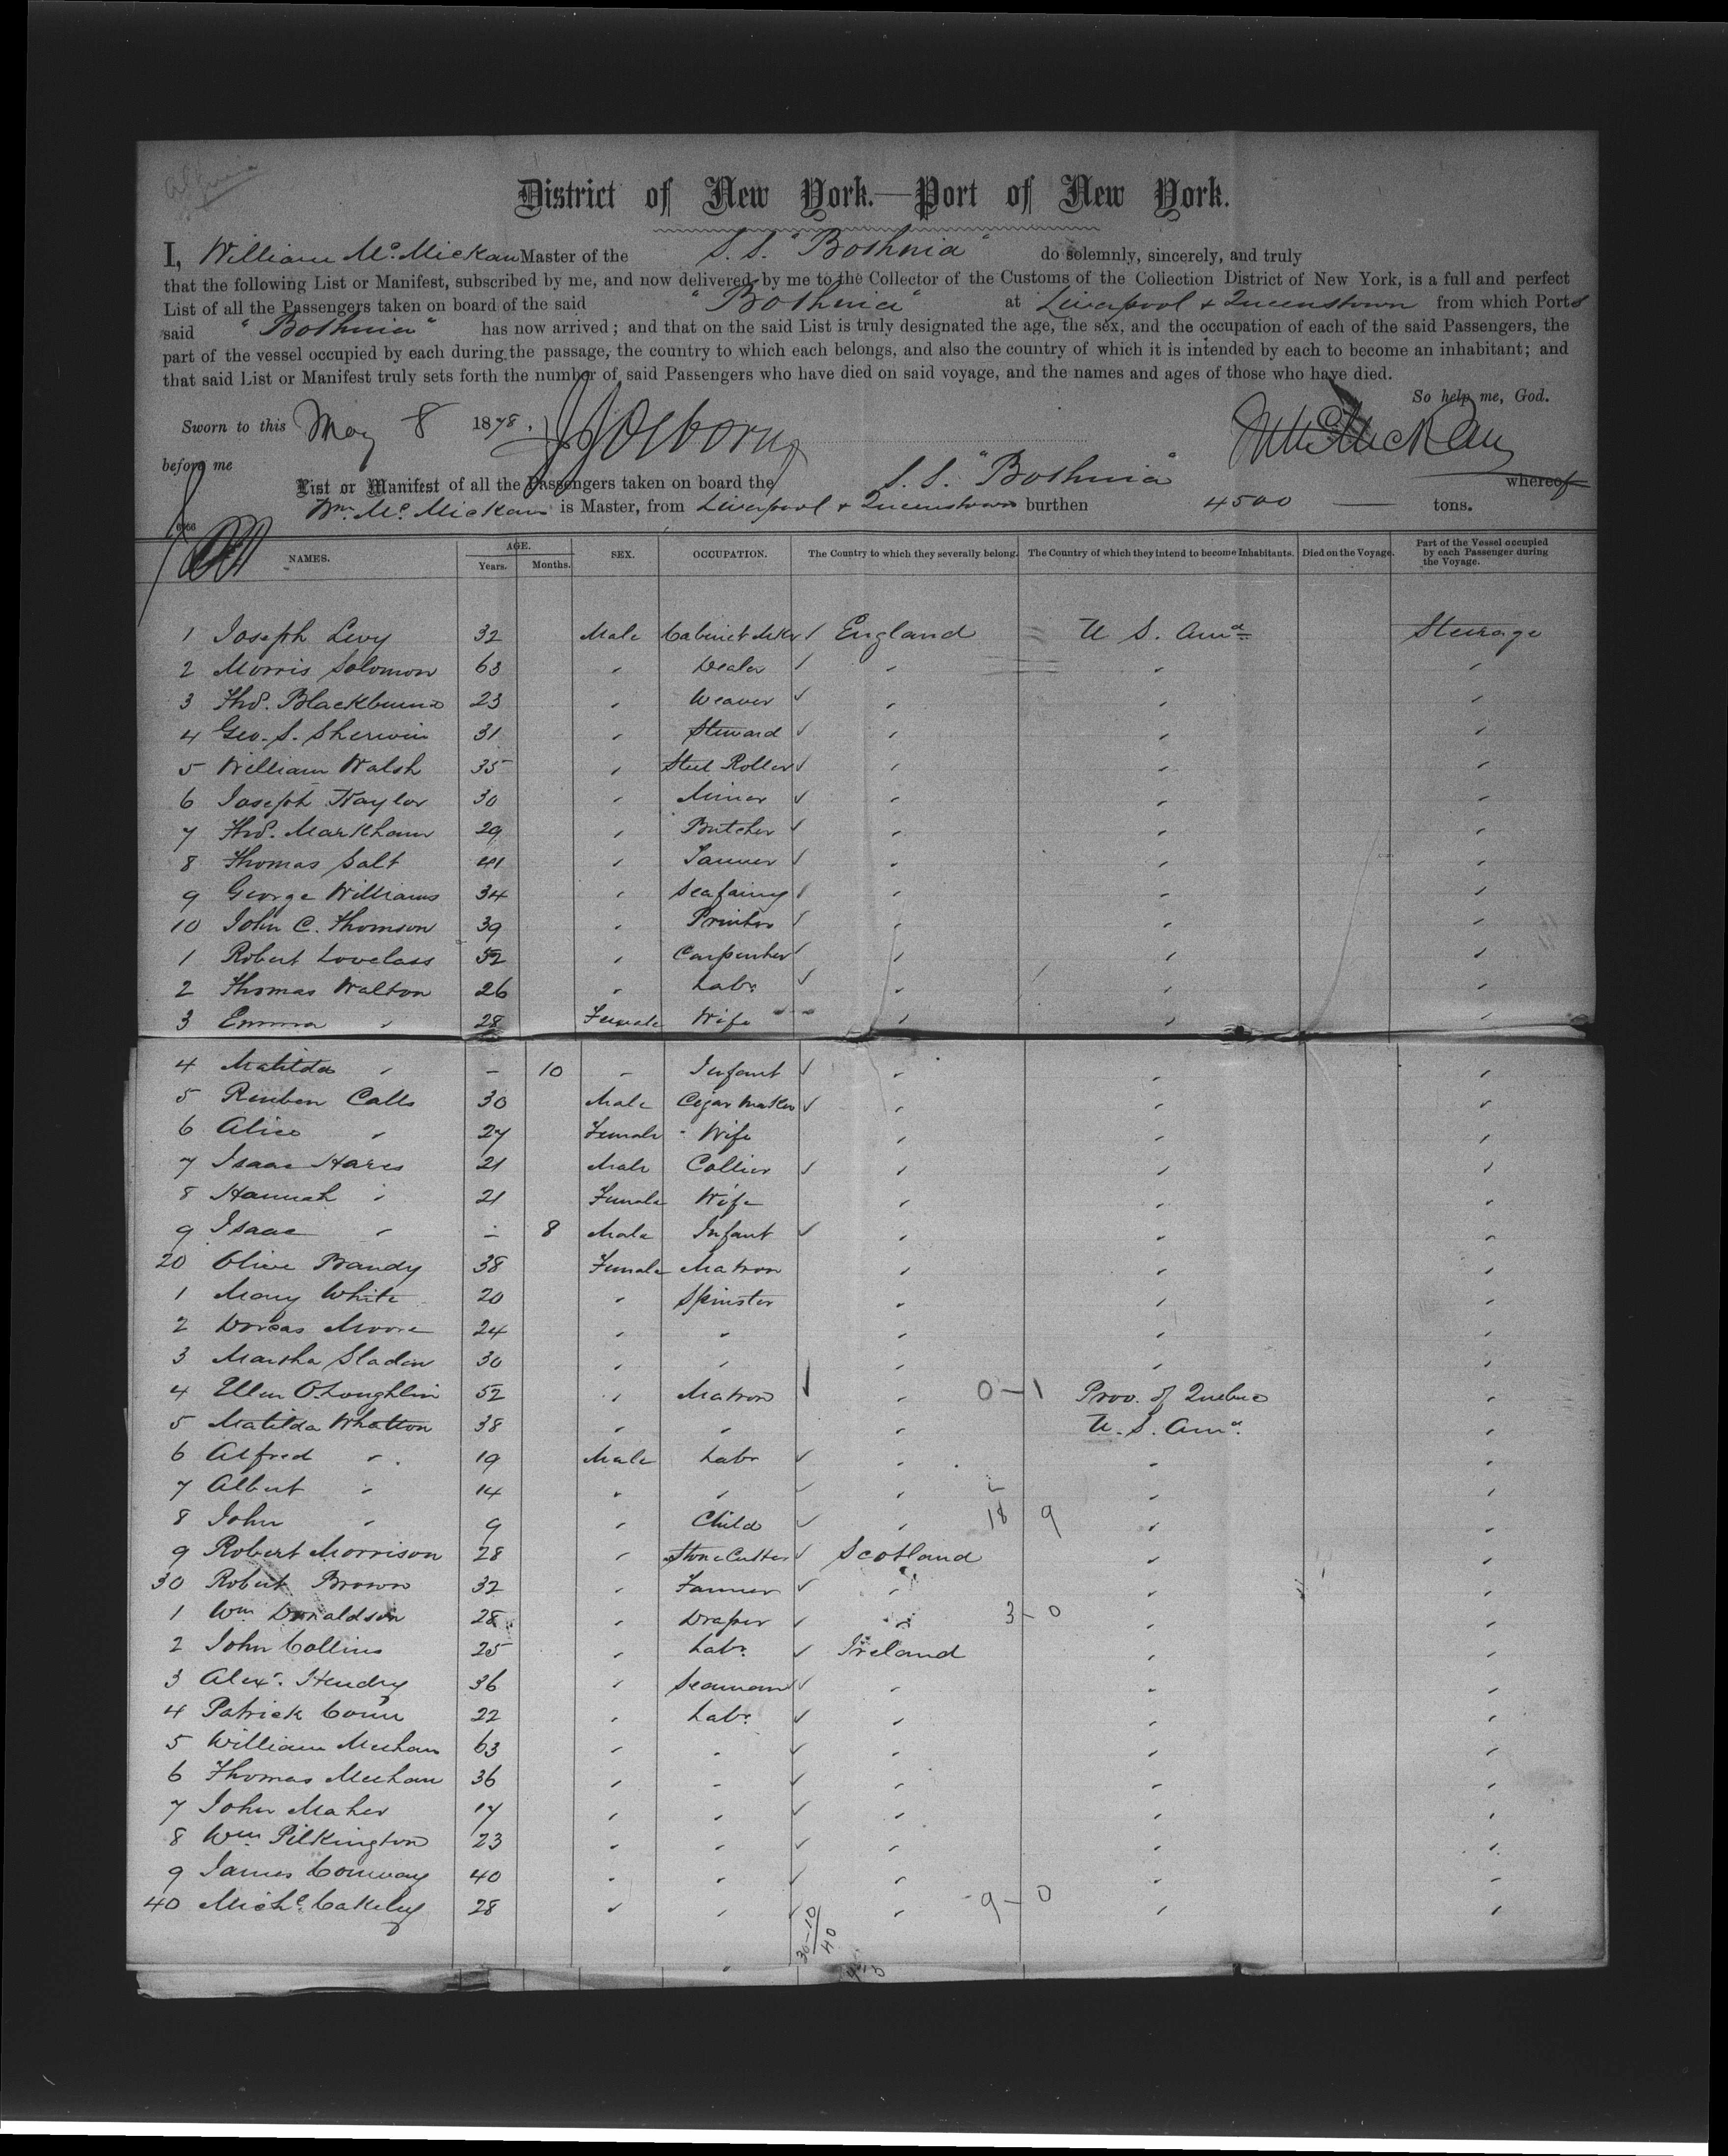 District of New York.—Port of New York.
I, William McMickan Master of the S. S. "Bothnia" do solemnly, sincerely, and truly
that the following List or Manifest, subscribed by me, and now delivered by me to the Collector of the Customs of the Collection District of New York, is a full and perfect
List of all the Passengers taken on board of the said "Bothnia" at Liverpool & Queenstown from which Ports
said "Bothnia" has now arrived; and that on the said List is truly designated the age, the sex, and the occupation of each of the said Passengers, the
part of the vessel occupied by each during the passage, the country to which each belongs, and also the country of which it is intended by each to become an inhabitant; and
that said List or Manifest truly sets forth the number of said Passengers who have died on said voyage, and the names and ages of those who have died.
So help me, God.
Sworn to this May 8 1878.
before me
List or Manifest of all the Passengers taken on board the S. S. "Bothnia" whereof
Wm. McMickan is Master, from Liverpool & Queenstown burthen 4500 — tons.
NAMES. AGE. Years. Months. SEX. OCCUPATION. The Country to which they severally belong. The Country of which they intend to become Inhabitants. Died on the Voyage. Part of the Vessel occupied by each Passenger during the Voyage.
1 Joseph Levy 32 Male Cabinet Mkr ✓ England U S. Ama Steerage
2 Morris Solomon 63 " Dealer ✓ " " "
3 Thos. Blackburn 23 " Weaver ✓ " " "
4 Geo. S. Sherwin 31 " Steward ✓ " " "
5 William Walsh 35 " Steel Roller ✓ " " "
6 Joseph Naylor 30 " Miner ✓ " " "
7 Thos. Markham 29 " Butcher ✓ " " "
8 Thomas Salt 41 " Tanner ✓ " " "
9 George Williams 34 " Seafaring ✓ " " "
10 John C. Thomson 39 " Printer ✓ " " "
1 Robert Lovelass 52 " Carpenter ✓ " " "
2 Thomas Walton 26 " Labr ✓ " " "
3 Emma " 28 Female Wife " " "
4 Matilda " - 10 " Infant ✓ " " "
5 Reuben Calls 30 Male Cigar Maker ✓ " " "
6 Alice " 27 Female Wife " " "
7 Isaac Hares 21 Male Collier ✓ " " "
8 Hannah " 21 Female Wife " " "
9 Isaac " - 8 Male Infant ✓ " " "
20 Olive Bandy 38 Female Matron " " "
1 Mary White 20 " Spinster " " "
2 Dorcas Moore 24 " " " " "
3 Martha Sladin 30 " " " " "
4 Ellen O'Loughlin 52 " Matron ✓ " 0-1 Prov. of Quebec "
5 Matilda Whatton 38 " " " U. S. Ama. "
6 Alfred " 19 Male Labr ✓ " " "
7 Albert " 14 " " ✓ " " "
8 John " 9 " Child ✓ " 18 9 " "
9 Robert Morrison 28 " Stone Cutter ✓ Scotland " "
30 Robert Brown 32 " Farmer ✓ " " "
1 Wm Donaldson 28 " Draper ✓ " 3-0 " "
2 John Collins 25 " Labr ✓ Ireland " "
3 Alexr. Hendry 36 " Seaman ✓ " " "
4 Patrick Conn 22 " Labr ✓ " " "
5 William Meehan 63 " " ✓ " " "
6 Thomas Meehan 36 " " ✓ " " "
7 John Maher 17 " " ✓ " " "
8 Wm Pilkington 23 " " ✓ " " "
9 James Conway 40 " " ✓ " " "
40 Michl. Cakeley 28 " " ✓ " 9-0 " "
30-10
40